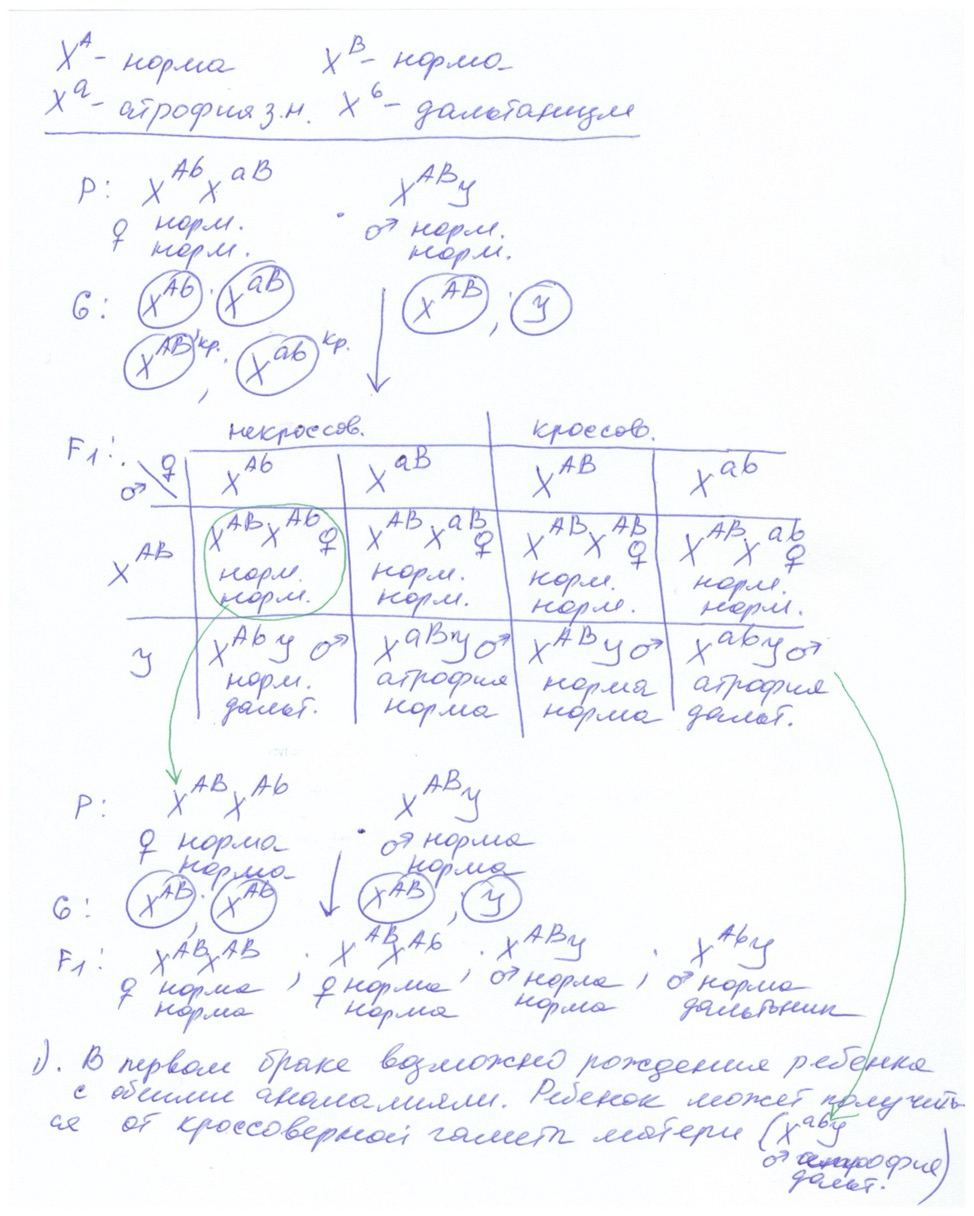 X^A - норма X^B - норма
X^a - атрофия з.н. X^b - дальтанизм
P: X^Ab X^aB X^AB y
♀ норм. ♂ норм.
норм. норм.
G: X^Ab, X^aB X^AB, y
X^AB кр., X^ab кр.
F1: некроссов. кроссов.
♀ ♂ X^Ab X^aB X^AB X^ab
X^AB X^AB X^Ab ♀ X^AB X^aB ♀ X^AB X^AB ♀ X^AB X^ab ♀
норм. норм. норм. норм.
норм. норм. норм. норм.
y X^Ab y ♂ X^aB y ♂ X^AB y ♂ X^ab y ♂
норм. атрофия норма атрофия
дальт. норма норма дальт.
P: X^AB X^Ab X^AB y
♀ норма ♂ норма
норма норма
G: X^AB, X^Ab X^AB, y
F1: X^AB X^AB, X^AB X^Ab, X^AB y, X^Ab y
♀ норма ♀ норма ♂ норма ♂ норма
норма норма норма дальтоник
1). В первом браке возможно рождения ребенка
с обоими аномалиями. Ребенок может получить
ся от кроссоверной гаметы матери (X^ab y
♂ атрофия)
дальт.